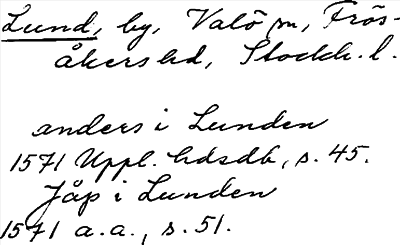 Lund, by, Valö sn, Frös-
åkers hd, Stockh. l.
anders i Lunden
1571 Uppl. hdsdb, s. 45.
Jåp i Lunden
1571 a.a., s. 51.